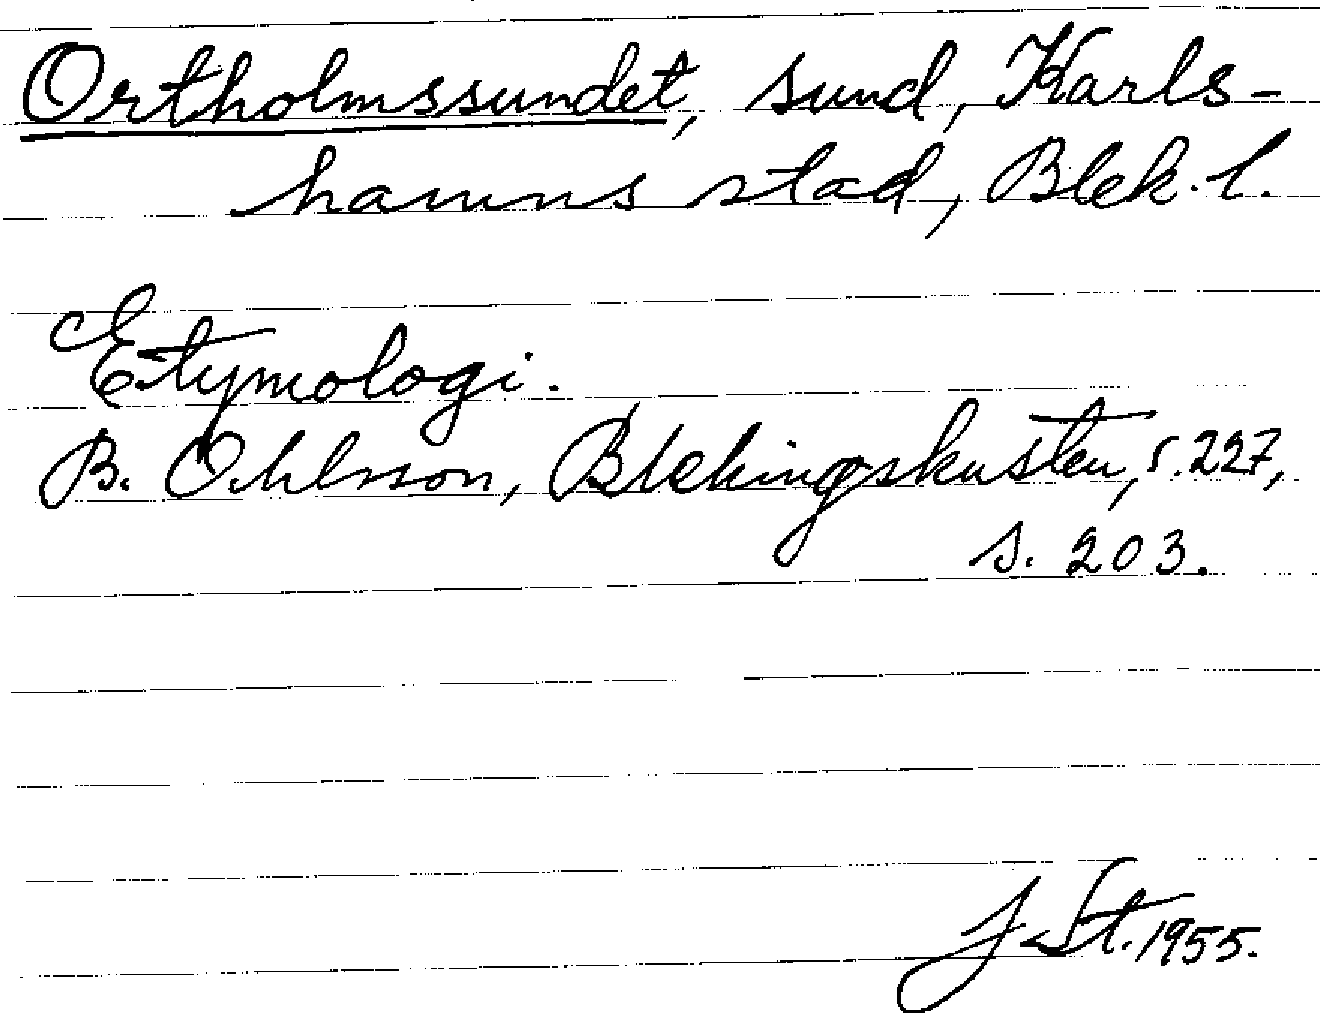 Ortholmssundet, sund, Karls-
hamns stad, Blek. l.
Etymologi.
B. Ohlsson, Blekingskusten, s. 227,
s. 203.
J. St. 1955.